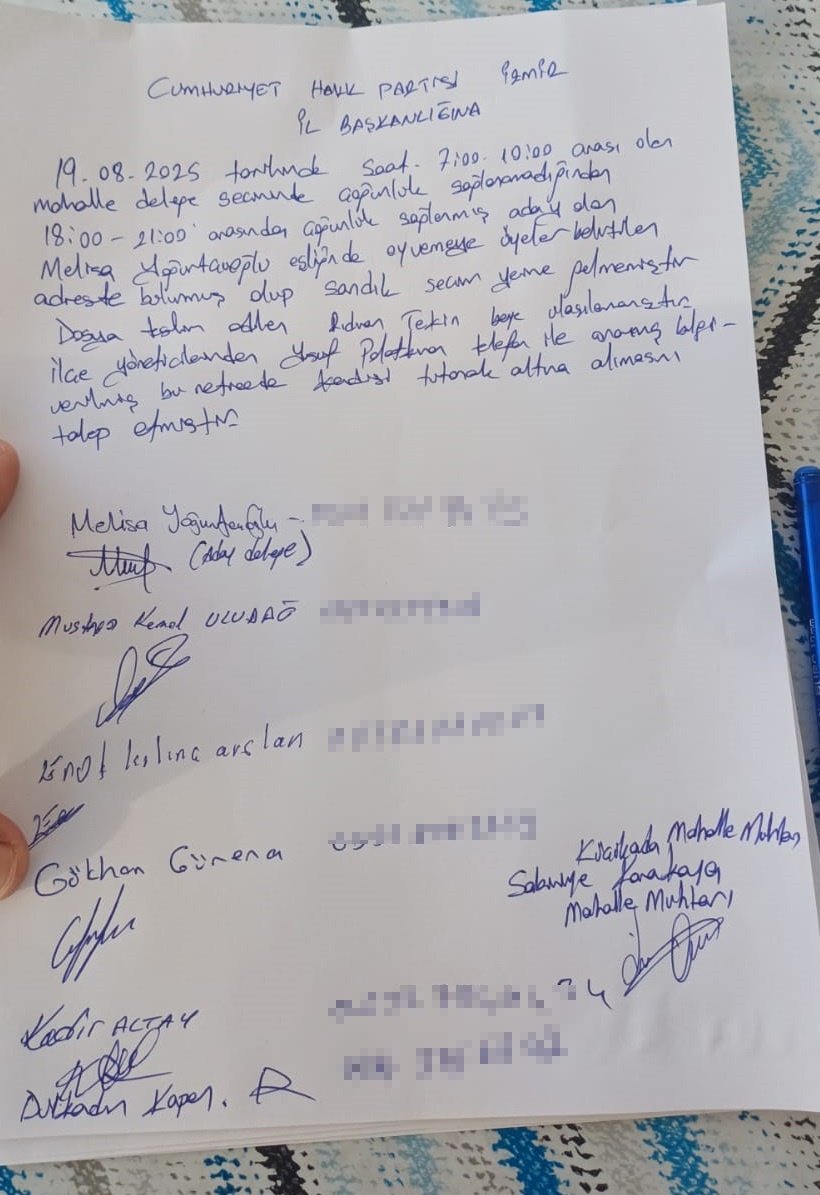 CUMHURİYET HALK PARTİSİ İZMİR
İL BAŞKANLIĞINA
19.08.2025 tarihinde Saat. 7:00-10:00 arası olan
mahalle delege seçiminde çoğunluk sağlanamadığından
18:00-21:00 arasında çoğunluk sağlanmış aday olan
Melisa Yoğurtçuoğlu eşliğinde oy vermeye üyeler belirtilen
adreste bulunmuş olup sandık seçim yerine gelmemiştir
Dosya teslim edilen Rıdvan Tekin beye ulaşılamamıştır
ilçe yöneticilerinden Yusuf telefon ile aranmış bilgi-
verilmiş bu kendisi tutanak altına alınmasını
talep etmiştir
Melisa Yoğurtçuoğlu -
(Aday delege)
Mustafa Kemal ULUDAĞ
kılınç arslan
Gökhan Gürena
Mahalle Muhtarı
Karakaya
Mahalle Muhtarı
Kadir ALTAY
24